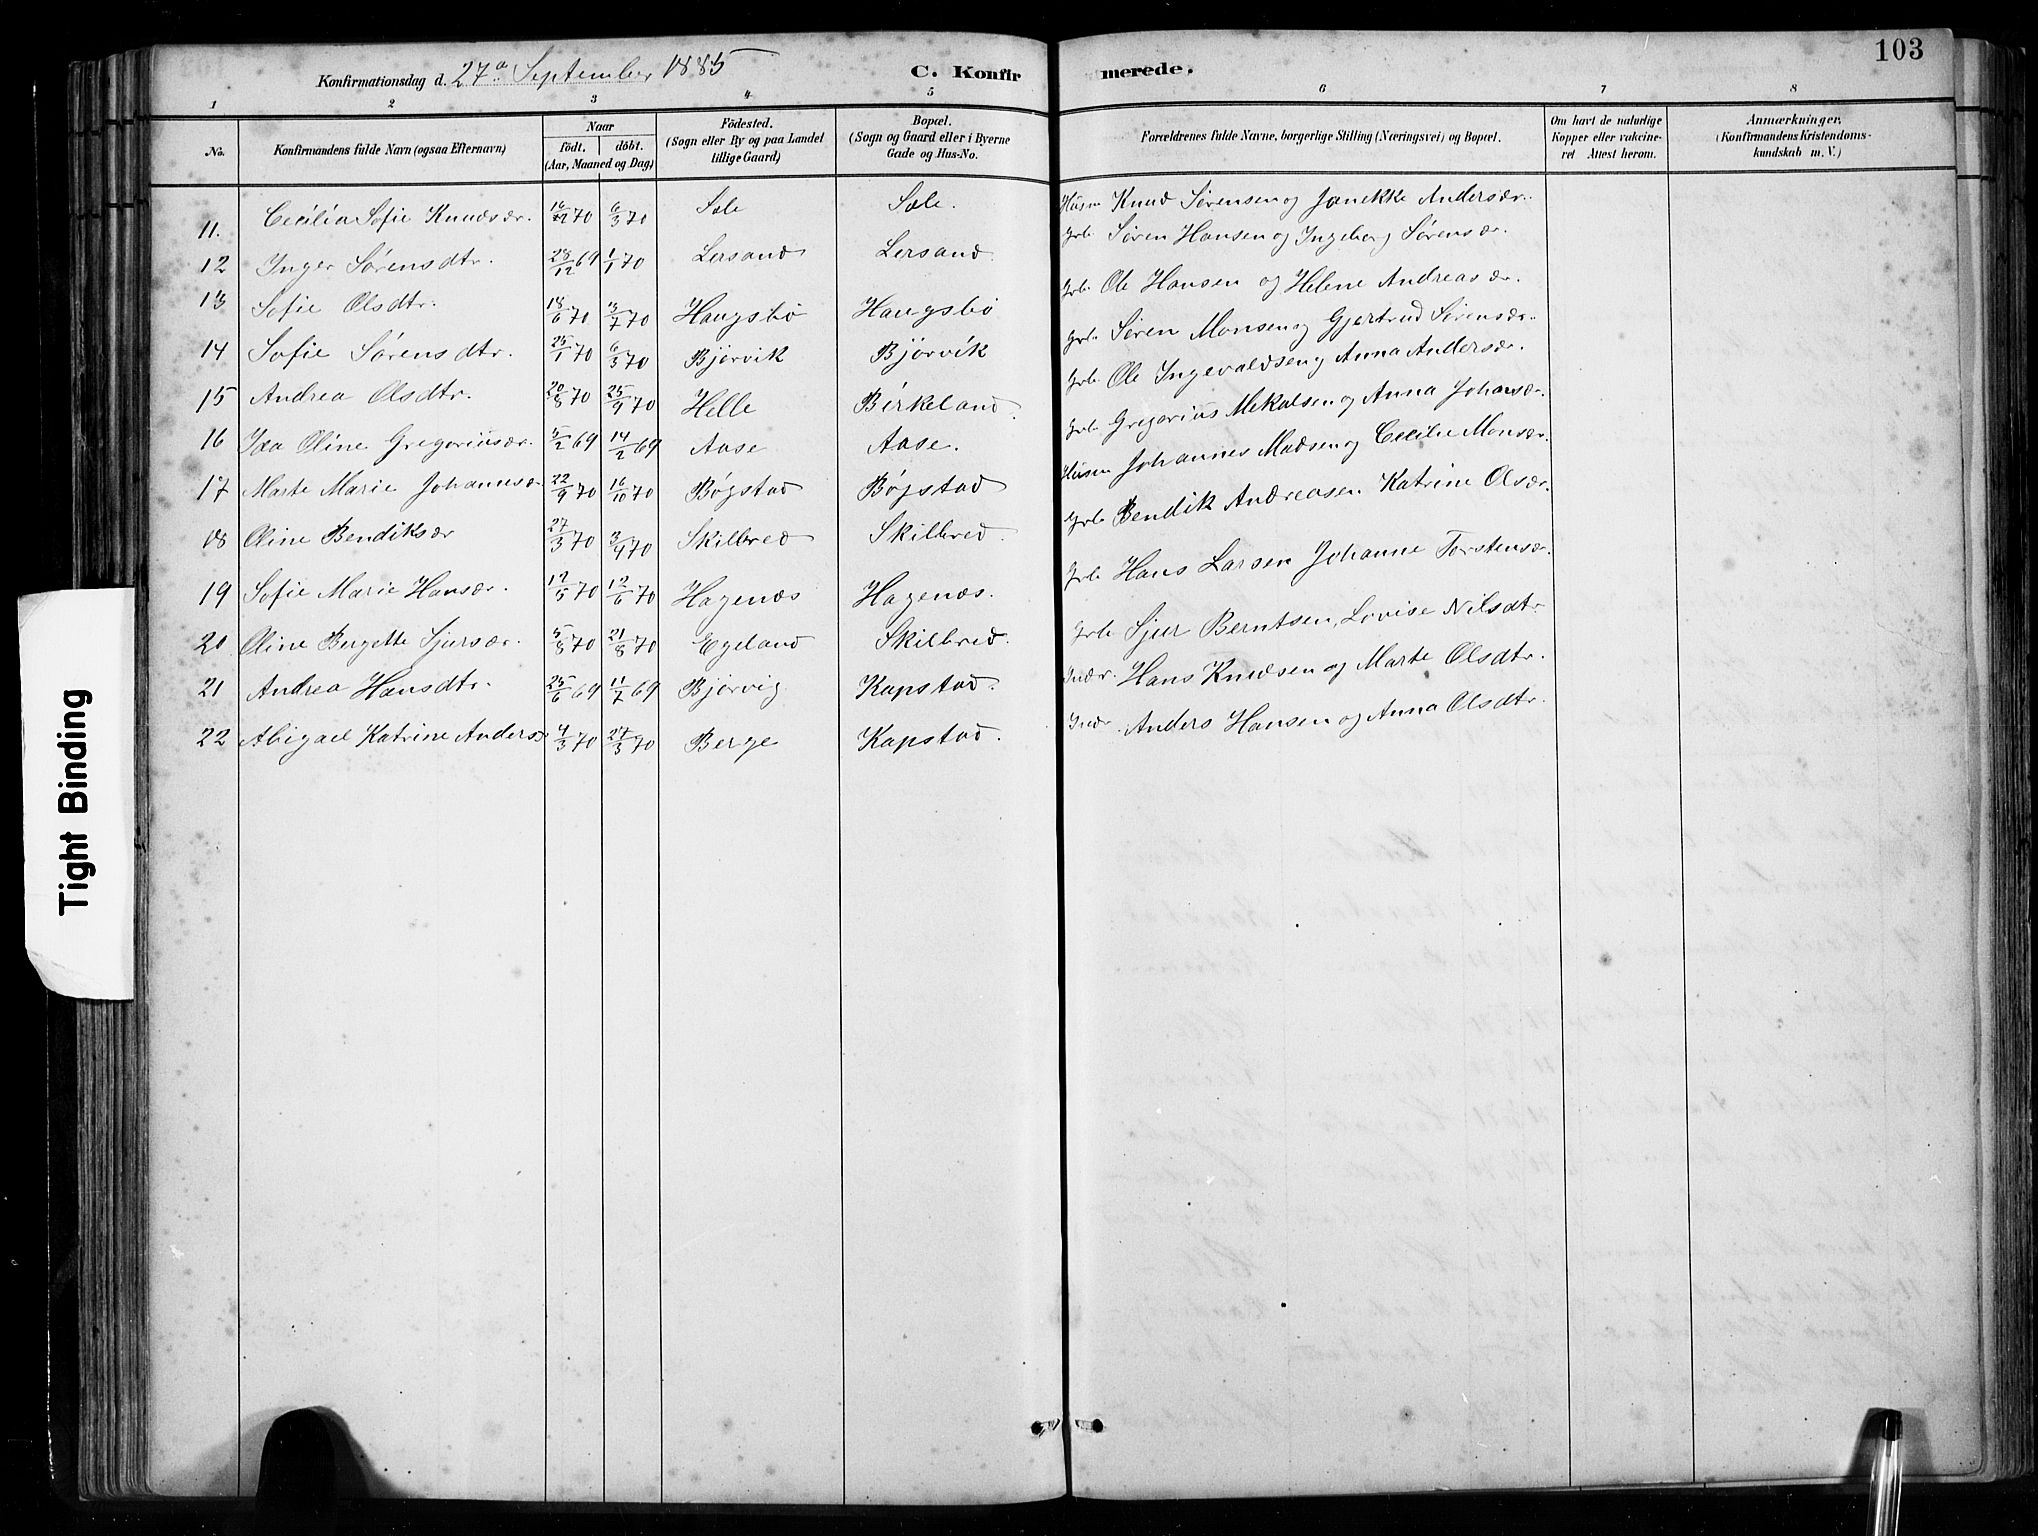 103
Konfirmationsdag d. 27de September 1885
C. Konfirmerede.
1 2 3 4 5 6 7 8
No. Konfirmandens fulde Navn (ogsaa Efternavn) Naar födt. döbt. (Aar, Maaned og Dag) Födested. (Sogn eller By og paa Landet tillige Gaard) Bopæl. (Sogn og Gaard eller i Byerne Gade og Hus-No. Forældrenes fulde Navne, borgerlige Stilling (Næringsvei) og Bopæl. Om havt de naturlige Kopper eller vakcineret Attest herom. Anmærkninger, (Konfirmandens Kristendomskundskab m. V.)
11. Cecilia Sofie Knudsdr. 70 6/3 70 Sole Sole. Husm Knud Sørensen og Janekke Andersdr.
12 Inger Sørensdtr. 28/12 69 1/1 70 Lersand Lersand Grb. Søren Hansen og Ingeborg Sørensdr.
13 Sofie Olsdtr. 18/6 70 3/7 70 Haugsbö Haugsbö Grb. Ole Hansen og Helene Andreasdr.
14 Sofie Sörensdtr. 25/1 70 6/3 70 Bjørvik Bjørvik Grb. Søren Monsen og Gjertrud Sørensdr.
15 Andrea Olsdtr. 20/8 70 25/9 70 Helle Birkeland. Grb Ole Ingevaldsen og Anna Andersdr.
16 Ida Oline Gregoriusdr. 5/2 69 14/2 69 Aase Aase. Grb Gregorius Mikalsen og Anna Johansdr.
17 Marte Marie Johannesdr 22/9 70 16/10 70 Bögstad Bögstad Husm Johannes Madsen og Cecilie Monsdr.
18 Oline Bendiksdr 27/3 70 3/4 70 Skilbred Skilbred. Grb Bendik Andreasen Katrine Olsdr.
19 Sofie Marie Hansdr. 17/5 70 12/6 70 Hagenæs Hagenæs. Grb Hans Larsen Johanne Torstensdr.
20 Oline Bergette Sjursdr. 5/8 70 21/8 70 Egeland Skilbred. Grb Sjur Berntsen, Lovise Nilsdtr
21 Andrea Hansdtr. 25/6 69 11/7 69 Bjørvig Kapstad. Inдr. Hans Knudsen og Marte Olsdtr.
22 Abigael Katrine Andersd 4/3 70 27/3 70 Berge Kapstad. Indr Anders Hansen og Anna Olsdtr.
Tight Binding